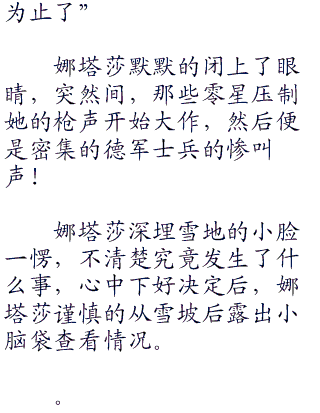 为止了”
娜塔莎默默的闭上了眼
睛，突然间，那些零星压制
她的枪声开始大作，然后便
是密集的德军士兵的惨叫
声！
娜塔莎深埋雪地的小脸
一愣，不清楚究竟发生了什
么事，心中下好决定后，娜
塔莎谨慎的从雪坡后露出小
脑袋查看情况。
。